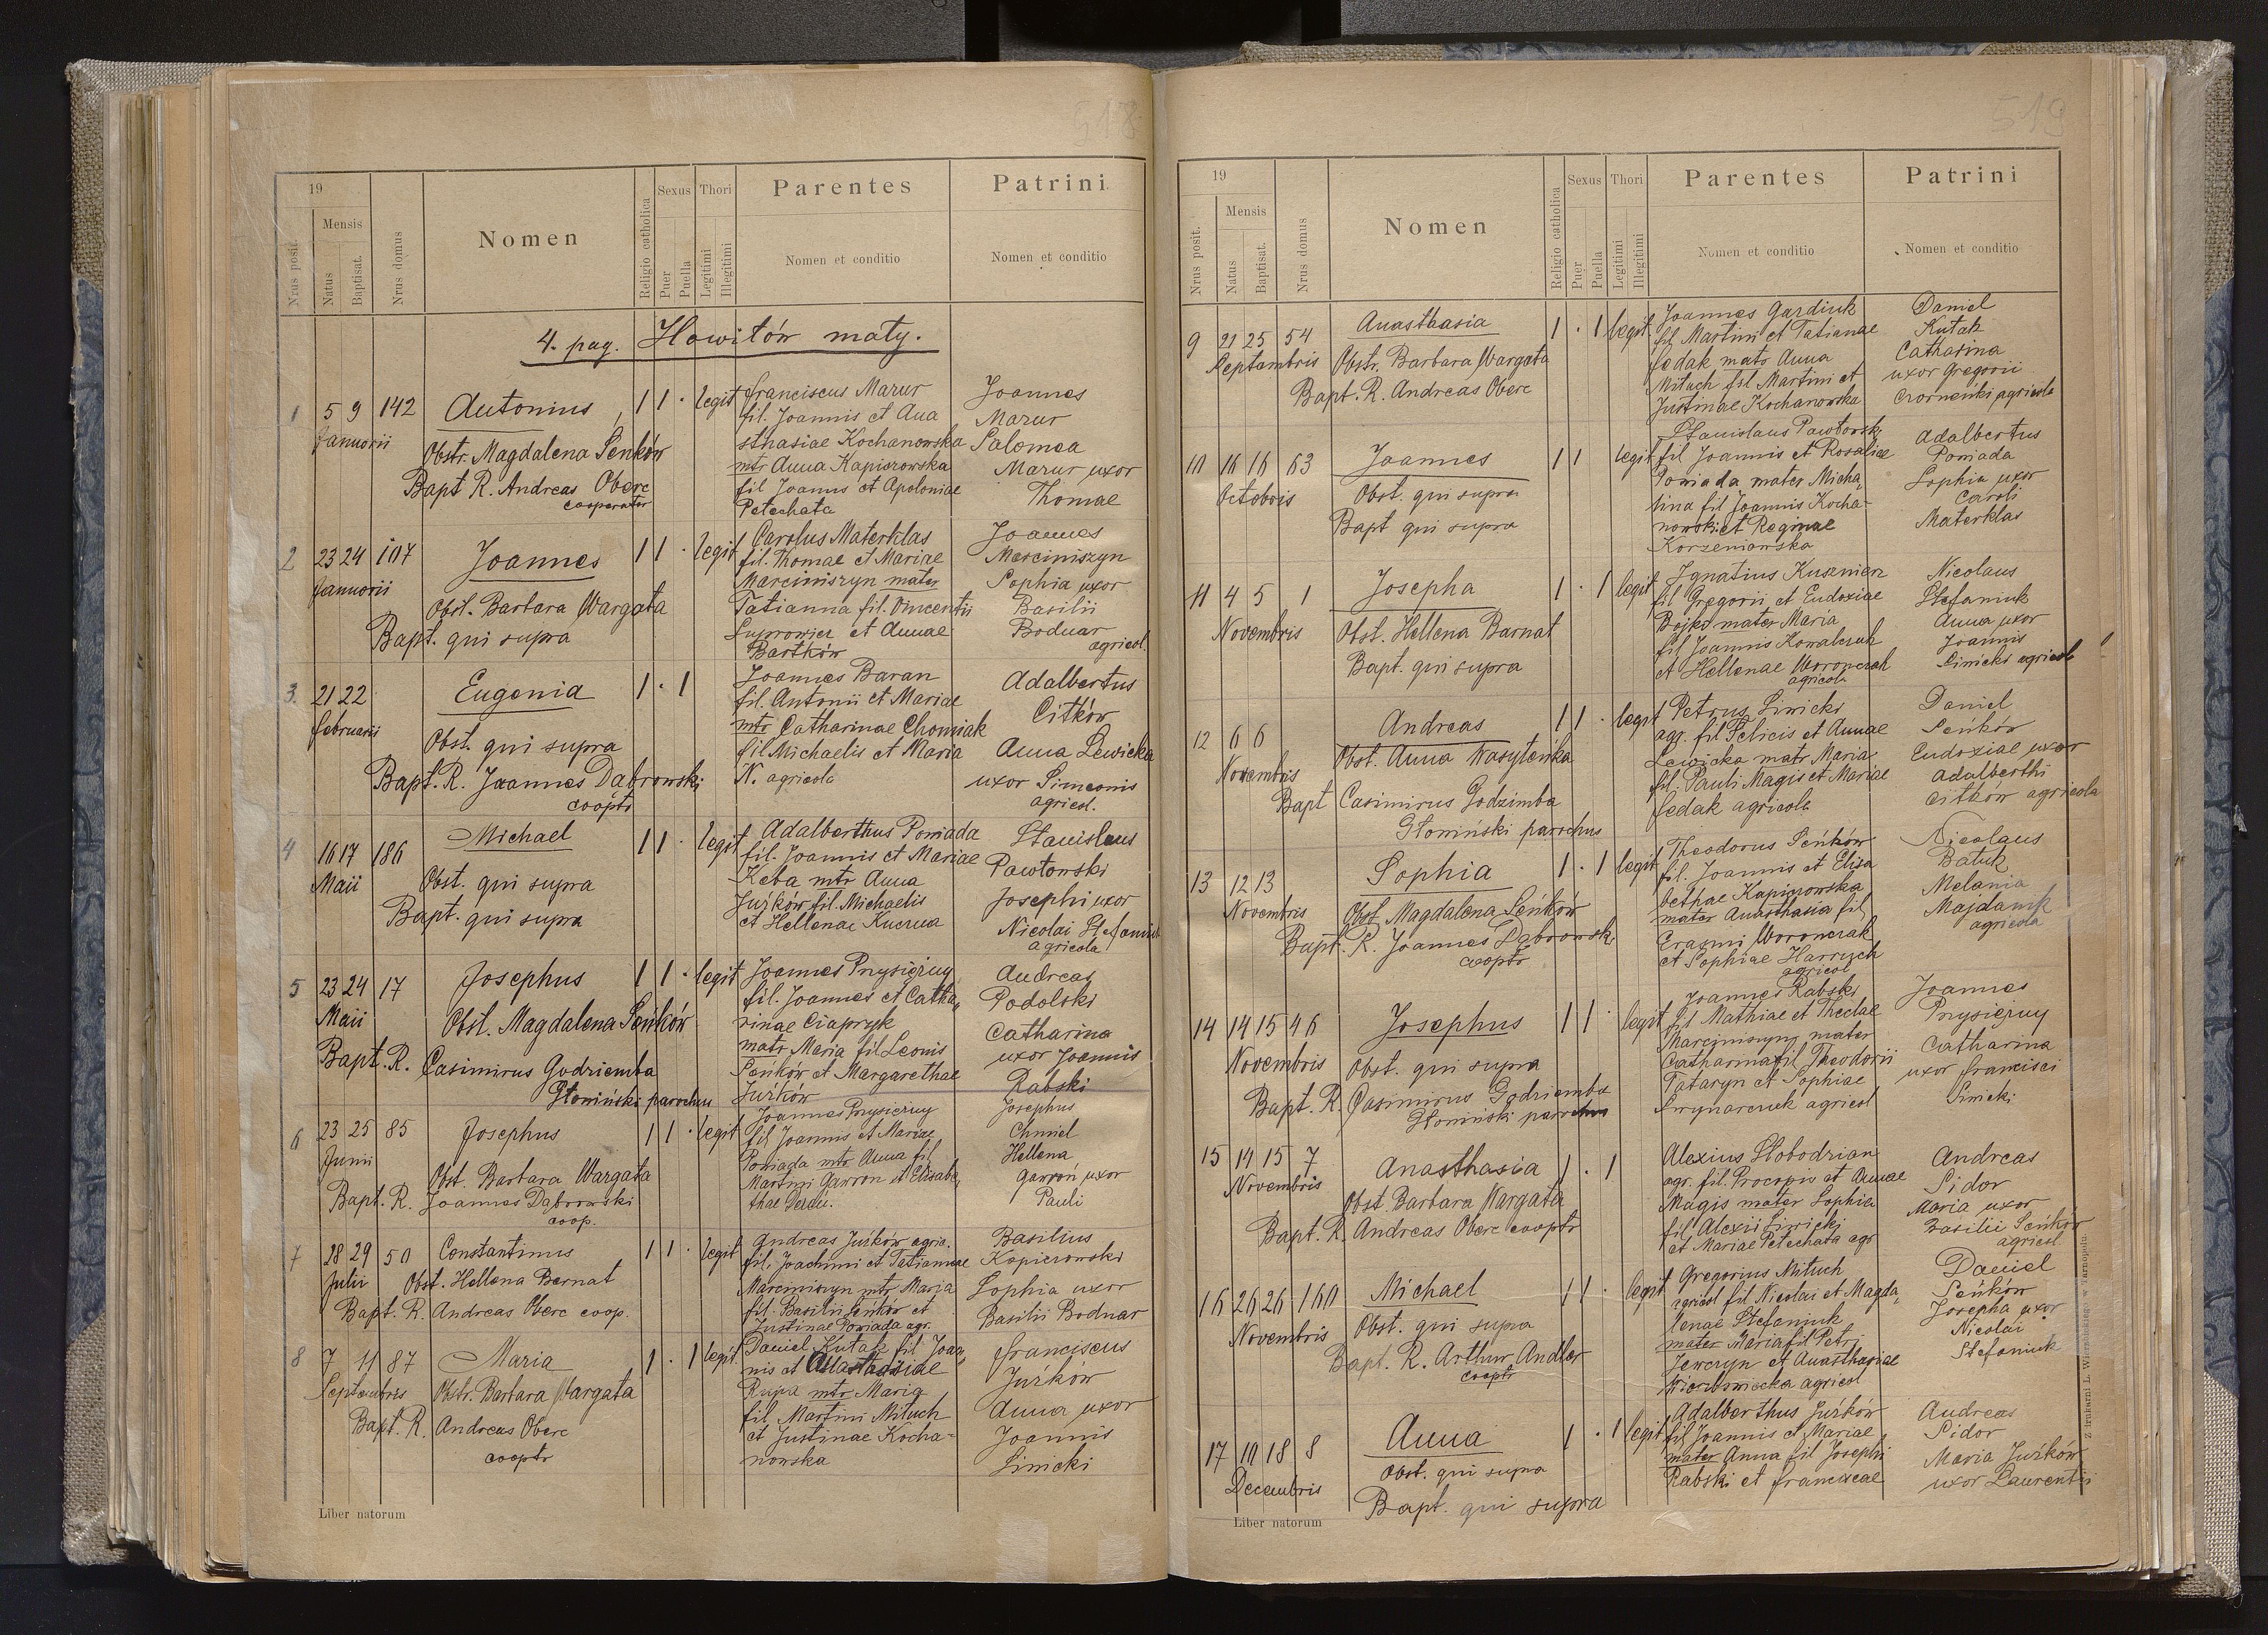 518
19
Nrus posit.
Mensis
Natus
Baptisat.
Nrus domus
Nomen
Religio catholica
Sexus
Puer
Puella
Thori
Legitimi
Illegitimi
Parentes
Nomen et conditio
Patrini
Nomen et conditio
4. pag. Howiłów mały.
1 5 9 142 Antonius 1 1 · legit
Januarii
Obstr. Magdalena Seńków
Bapt R. Andreas Oberc
cooperator
Franciscus Mazur
fil. Joannis et Ana
sthasiae Kochanowska
mtr Anna Kapiczowska
fil Joannis et Apoloniae
Petechata
Joannes
Mazur
Salomea
Mazur uxor
Thomae
2 23 24 107 Joannes 1 1 · legit
Januarii
Obst. Barbara Wargata
Bapt. qui supra
Carolus Materklas
fil. Thomae et Mariae
Marciniszyn mater
Tatianna fil. Vincentii
et Annae
Bartków
Joannes
Marciniszyn
Sophia uxor
Basilii
Bodnar
agricol.
3. 21 22 Eugenia 1 · 1
februarii
Obst. qui supra
Bapt. R. Joannes Dąbrowski
cooptr
Joannes Baran
fil. Antonii et Mariae
mtr Catharinae Chomiak
fil Michaelis et Maria
N. agricola
Adalbertus
Citków
Anna Lewicka
uxor Simeonis
agricol.
4 16 17 186 Michael 1 1 · legit
Maii
Obst. qui supra
Bapt. qui supra
Adalberthus Poniada
fil. Joannis et Mariae
Keba mtr Anna
Jurków fil. Michaelis
et Hellenae Kuczma
Stanislaus
Pawłowski
Josephi uxor
Nicolai Stefaniuk
agricola
5 23 24 17 Josephus 1 1 · legit
Maii
Obst. Magdalena Seńków
Bapt. R. Casimirus Godziemba
Głomiński parochus
Joannes Przysiężny
fil. Joannes et Catha„
rinae Ciapryk
matr Maria fil Leonis
Seńków et Margarethae
Jurków
Andreas
Podolski
Catharina
uxor Joannis
Rabski
6 23 25 85 Josephus 1 1 · legit
Junii
Obst. Barbara Wargata
Bapt. R. Joannes Dąbrowski
coop.
Joannes Przysiężny
fil Joannis et Mariae
Poniada mtr Anna fil
Martini Gawron et Elisabe„
thae
Josephus
Chmiel
Hellena
Gawroń uxor
Pauli
7 28 29 50 Constantinus 1 1 · legit
Julii
Obst. Hellena Bernat
Bapt. R. Andreas Oberc coop.
Andreas Jurków agric.
fil. Joachimi et Tatiannae
Marciniszyn mtr Maria
fil. Basilii Seńków et
Justinae Poniada agr.
Basilius
Kopiczowski
Sophia uxor
Basilii Bodnar
8 7 11 87 Maria 1 · 1 legit.
Septembris
Obstr. Barbara Wargata
Bapt. R. Andreas Oberc
cooptr
Daniel Kutak fil Joan„
nis et Anastasiae
Rupa mtr Maria
fil. Martini Mituch
et Justinae Kocha-
nowska
Franciscus
Jurków
Anna uxor
Joannis
Linicki
Liber natorum
519
19
Nrus posit.
Mensis
Natus
Baptisat.
Nrus domus
Nomen
Religio catholica
Sexus
Puer
Puella
Thori
Legitimi
Illegitimi
Parentes
Nomen et conditio
Patrini
Nomen et conditio
9 21 25 54 Anasthasia 1 · 1 legit
Septembris
Obstr. Barbara Wargata
Bapt. R. Andreas Oberc
Joannes Gardiuk
fil Martini et Tatianae
fedak matr Anna
Mituch fil Martini et
Justinae Kochanowska
Daniel
Kutak
Catharina
uxor Gregorii
agricola
10 16 16 63 Joannes 1 1 legit
Octobris
Obst. qui supra
Bapt qui supra
Stanislaus Pawłowski
fil Joannis et Rosaliae
Poniada mater Micha„
lina fil Joannis Kocha-
nowski et Reginae
Korzeniowska
Adalbertus
Poniada
Sophia uxor
Caroli
Materklas
11 4 5 1 Josepha 1 · 1 legit
Novembris
Obst. Hellena Barnat
Bapt. qui supra
Ignatius Kusznierz
fil Gregorii et Eudoxiae
Bojko mater Maria
fil Joannis Kowalczuk
et Hellenae Woronczak
agricola
Nicolaus
Stefaniuk
Anna uxor
Joannis
Linicki agricola
12 6 6 Andreas 1 1 · legit
Novembris
Obst. Anna Wasyleńka
Bapt Casimirus Godzimba
Głomiński parochus
Petrus Linicki
agr. fil Felicis et Annae
Lewicka matr Maria
fil. Pauli Magis et Mariae
fedak agricola
Daniel
Seńków
Eudoxiae uxor
Adalberthi
Citków agricola
13 12 13 Sophia 1 · 1 legit
Novembris
Obst Magdalena Seńków
Bapt. R. Joannes Dąbrowski
cooptr
Theodorus Seńków
fil. Joannis et Elisa
bethae Kapiczowska
mater Anasthasia fil
Erazmi Woronczak
et Sophiae
agricol
Nicolaus
Batuk
Melania
Majdanik
agricola
14 14 15 46 Josephus 1 1 · legit
Novembris
Obst. qui supra
Bapt. R. Casimirus Godziemba
Głomiński parochus
Joannes Rabski
fil Mathiae et Theclae
Marciniszyn mater
Catharina fil Theodorii
Tataryn et Sophiae
agricol
Joannes
Przysiężny
Catharina
uxor Francisci
Linicki
15 14 15 7 Anasthasia 1 · 1
Novembris
Obst Barbara Wargata
Bapt. R. Andreas Oberc cooptr
Alexius Słobodzian
agr. fil. Procopis et Annae
Magis mater Sophia
fil Alexii Linicki
et Mariae Petechata agr
Andreas
Sidor
Maria uxor
Basilii Seńków
agricol
16 26 26 160 Michael 1 1 · legit
Novembris
Obst. qui supra
Bapt. R. Arthur Andler
cooptr
Gregorius Mituch
agricol fil Nicolai et Magda„
lenae Stefaniuk
mater Maria fil Petri
et Anasthasiae
agricol
Daniel
Seńków
Josepha uxor
Nicolai
Stefaniuk
17 10 18 8 Anna 1 · 1 legit
Decembris
Obst. qui supra
Bapt. qui supra
Adalberthus Jurków
fil Joannis et Mariae
mater Anna fil Josephi
Rabski et Franciscae
Andreas
Sidor
Maria Jurków
uxor Laurentii
Liber natorum
Z drukarni L. Wierzbickiego w Tarnopolu.